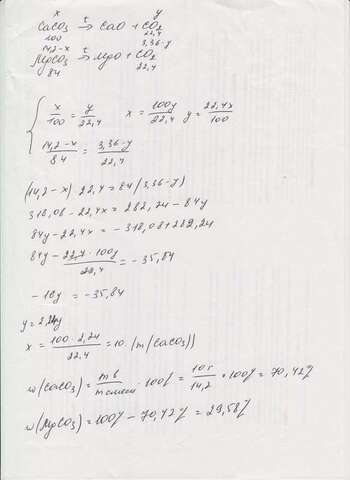 x y
CaCO3 t→ CaO + CO2
100 22,4
14,2-x 3,36-y
MgCO3 t→ MgO + CO2
84 22,4
x/100 = y/22,4 x = 100y/22,4 y = 22,4x/100
14,2-x/84 = 3,36-y/22,4
(14,2-x)·22,4 = 84(3,36-y)
318,08 - 22,4x = 282,24 - 84y
84y - 22,4x = -318,08 + 282,24
84y - 22,4·100y/22,4 = -35,84
-16y = -35,84
y = 2,24
x = 100·2,24/22,4 = 10 (m(CaCO3))
w(CaCO3) = m в/m смеси · 100% = 10г/14,2 · 100% = 70,42%
w(MgCO3) = 100% - 70,42% = 29,58%